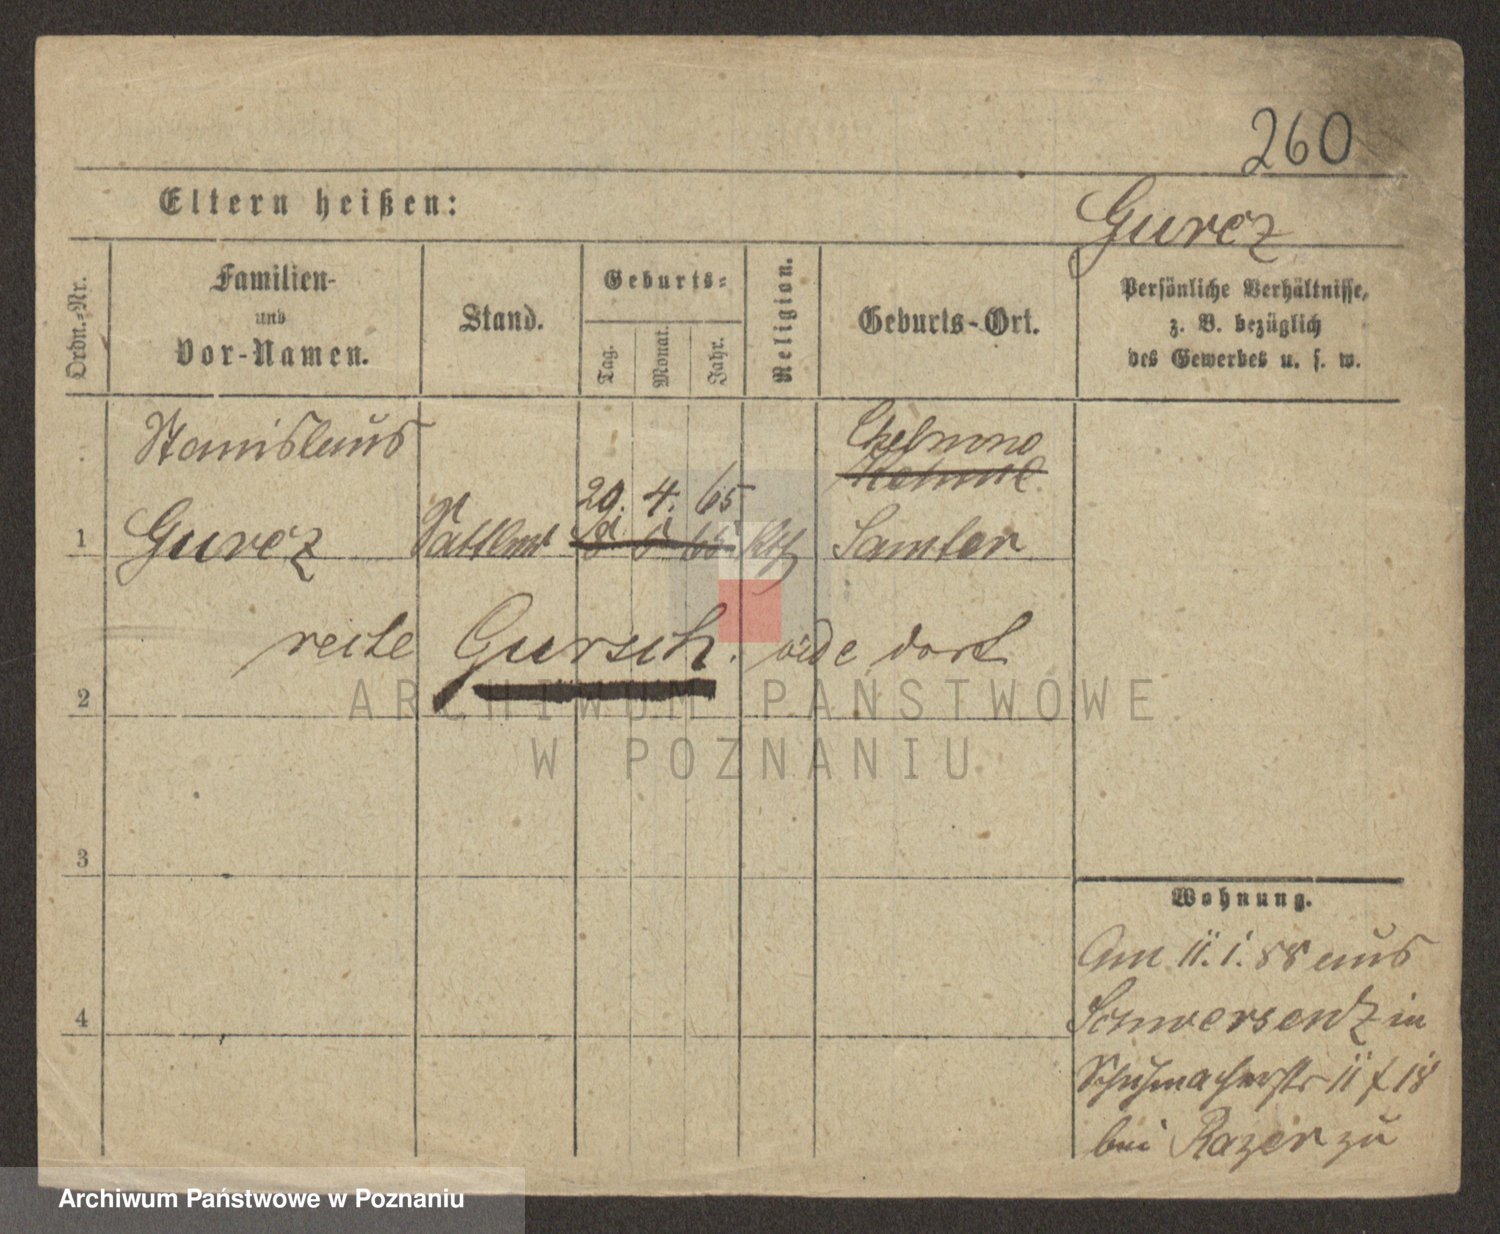 260
Eltern heißen:
Gurcz
Ordn.-Nr.
Familien-
und
Vor-Namen.
Stand.
Geburts-
Tag.
Monat.
Jahr.
Religion.
Geburts-Ort.
Persönliche Verhältnisse,
z. B. bezüglich
des Gewerbes u. s. w.
Stanislaus
Chelmno
20. 4. 65
1 Gurcz Sattler Kth Samter
recte Gursch. vide dort
2
ARCHIWUM PAŃSTWOWE
W POZNANIU
3
Wohnung.
Am 11. 1. 88 aus
4
Schwersenz in
Schuhmacherstr 11 / 18
bei Razer zu
Archiwum Państwowe w Poznaniu